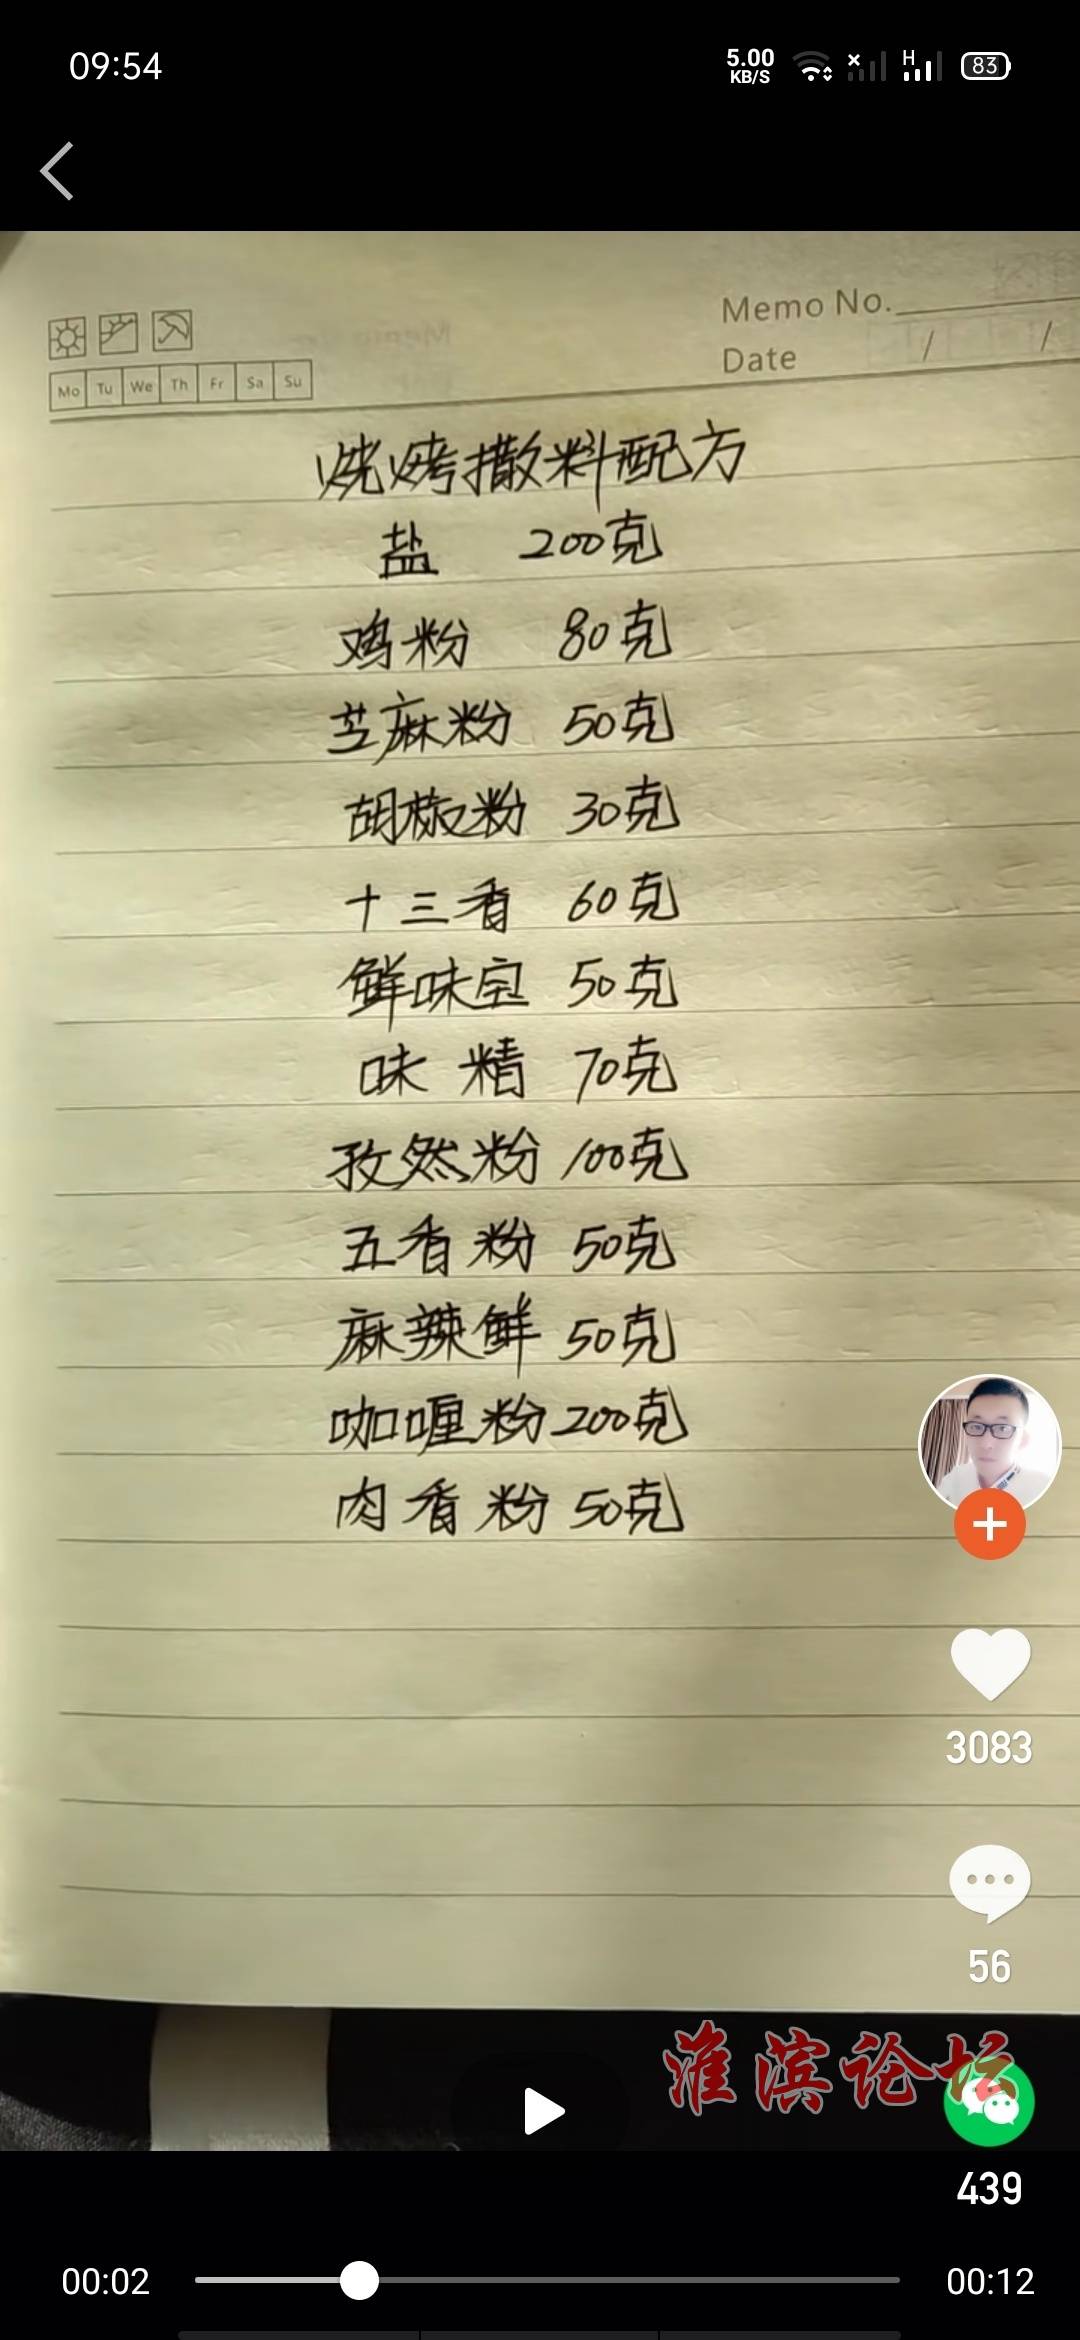 09:54
5.00 KB/S
H
83
Memo No.
Date / /
Mo Tu We Th Fr Sa Su
烧烤撒料配方
盐 200克
鸡粉 80克
芝麻粉 50克
胡椒粉 30克
十三香 60克
鲜味宝 50克
味精 70克
孜然粉 100克
五香粉 50克
麻辣鲜 50克
咖喱粉 200克
肉香粉 50克
3083
56
淮滨论坛
439
00:02
00:12